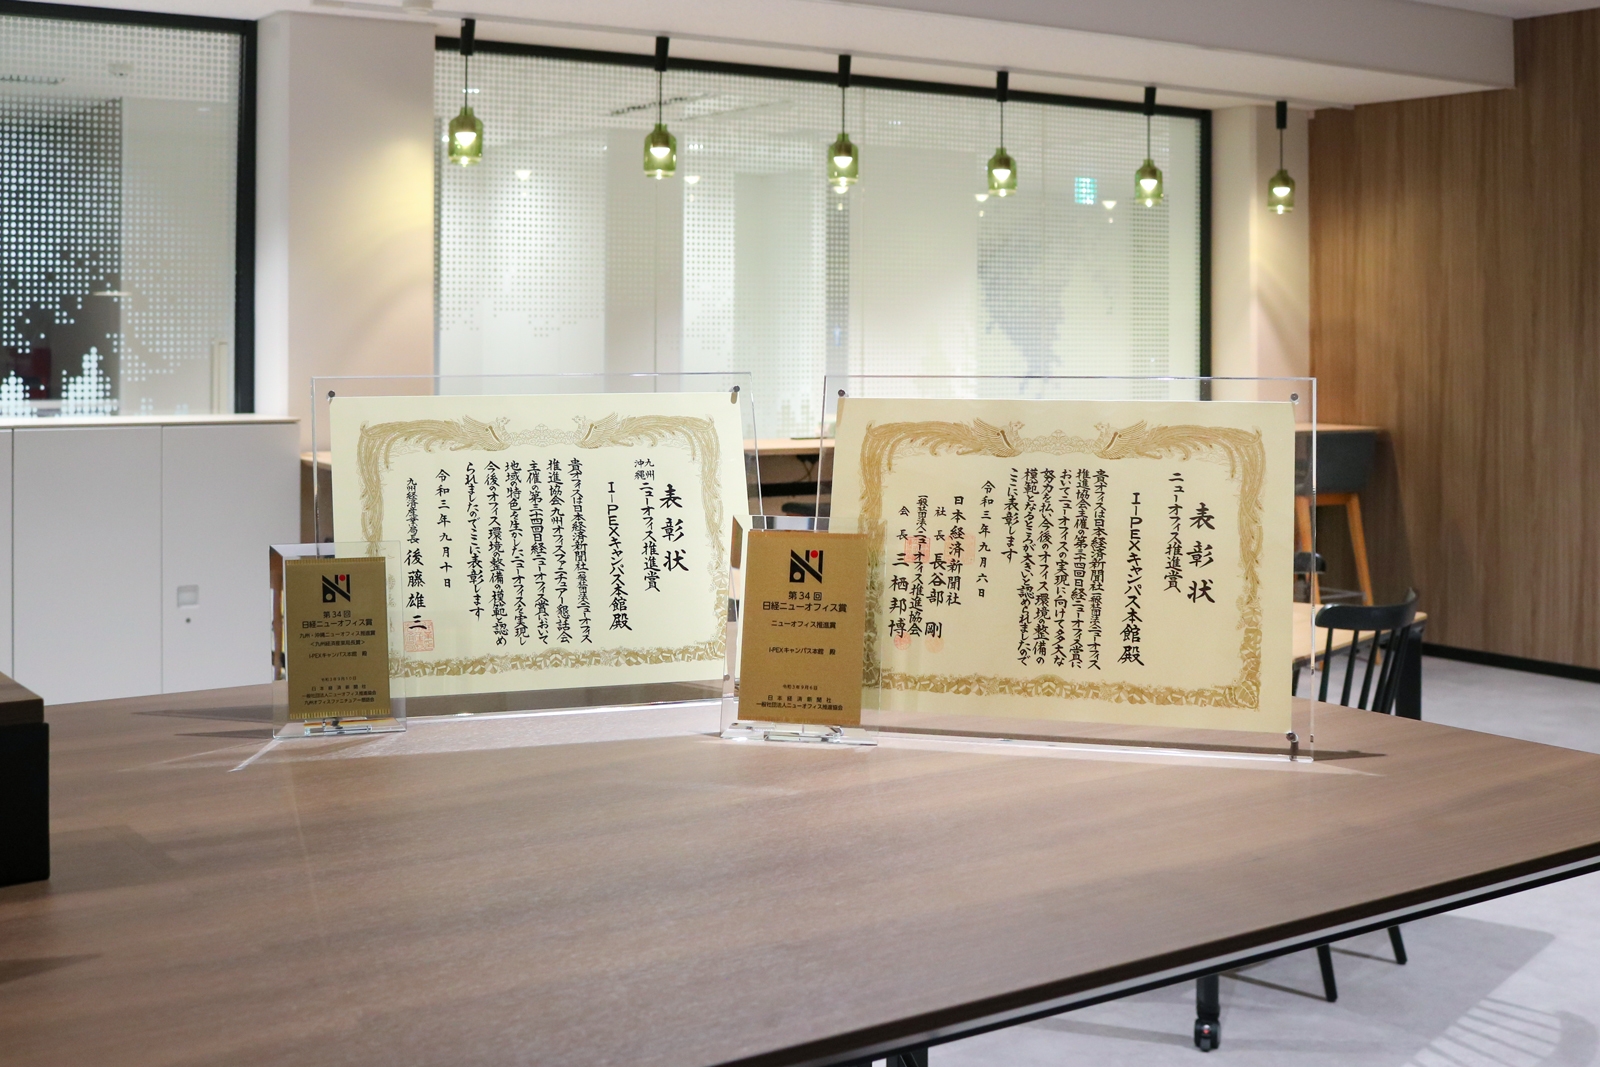 表彰状
九州
沖縄
ニューオフィス推進賞
I-PEXキャンパス本館殿
貴オフィスは日本経済新聞社(一般社団法人)ニューオフィス
推進協会九州オフィスファニチュアー懇話会
主催の第三十四回日経ニューオフィス賞において
地域の特色を生かしたニューオフィスを実現し
今後のオフィス環境の整備の模範と認め
られましたのでここに表彰します
令和三年九月十日
九州経済産業局長 後藤雄三
第34回
日経ニューオフィス賞
九州・沖縄ニューオフィス推進賞
<九州経済産業局長賞>
I-PEXキャンパス本館 殿
令和3年9月10日
日本経済新聞社
一般社団法人ニューオフィス推進協会
九州オフィスファニチュアー懇話会
表彰状
ニューオフィス推進賞
I-PEXキャンパス本館殿
貴オフィスは日本経済新聞社(一般社団法人)ニューオフィス
推進協会主催の第三十四回日経ニューオフィス賞に
おいてニューオフィスの実現に向けて多大な
努力を払い今後のオフィス環境の整備の
模範となるところが大きいと認められましたので
ここに表彰します
令和三年九月六日
日本経済新聞社
社長 長谷部 剛
(一般社団法人)ニューオフィス推進協会
会長 三栖邦博
第34回
日経ニューオフィス賞
ニューオフィス推進賞
I-PEXキャンパス本館 殿
令和3年9月6日
日本経済新聞社
一般社団法人ニューオフィス推進協会